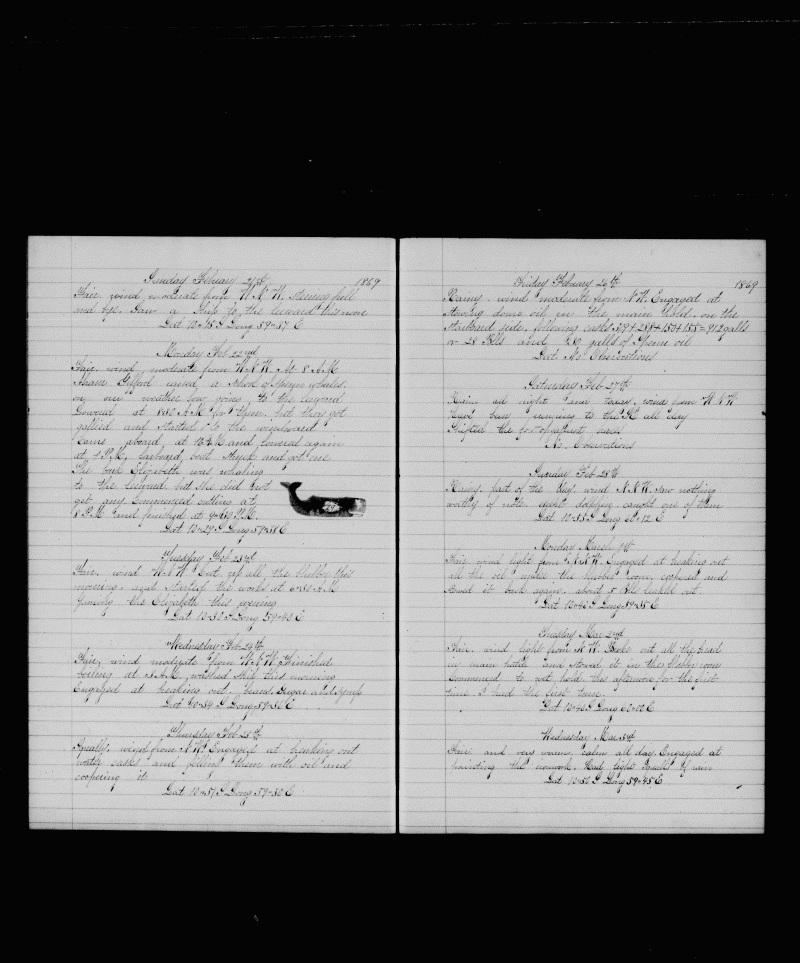 Sunday February 21st 1869
Fair, wind moderate from W.N.W. steering full
and bye. Saw a Ship to the leeward this noon
Lat 13-15 S Long 59-37 E
Monday Feb 22nd
Fair, wind moderate from W.N.W. At 8 A.M
Gifford raised a Shoal of Sperm whales,
on our weather bow going to the leeward
Lowered at A.M for them, but they got
gallied and started to the windward
Came aboard at and lowered again
at 1 P.M. Larboard boat struck and got one
The bark Elizabeth was whaling
to the leeward but she did not
get any. Commenced cutting at
P.M and finished at P.M.
Lat 13-29 S Long 59-38 E
Tuesday Feb 23rd
Fair, wind W.N.W. Cut up all the blubber this
morning, and started the works at 6-30 A.M
Gamming the Elizabeth this evening
Lat 13-30 S Long 59-40 E
Wednesday Feb 24th
Fair, wind moderate from W.N.W. Finished
boiling at A.M, washed ship this morning
Engaged at breaking out beans, sugar and syrup
Lat S Long 59-30 E
Thursday Feb 25th
Squally, wind from N.W. Engaged at breaking out
water casks and filling them with oil and
coopering it
Lat 13-51 S Long 59-30 E
Friday February 26th 1869
Rainy, wind moderate from N.W. Engaged at
stowing down oil in the main hold, on the
Starboard side, following casks = 912 galls
or 28 Bbls and galls of Sperm oil
Lat No Observations
Saturday Feb 27th
Rain all night and today, wind from W.N.W
Have been running to the all day
Shifted the
No Observations
Sunday Feb 28th
Rainy part of the day, wind N.N.W. saw nothing
worthy of note, except dolphin, caught one of them
Lat 13-35 S Long 60-12 E
Monday March 1st
Fair wind light from N.N.W. Engaged at breaking out
all the oil under the blubber room, coopered and
stowed it back again, about 5 Bbls leaked out
Lat 13-42 S Long 59-35 E
Tuesday Mar 2nd
Fair, wind light from N.W. Broke out all the bread
in main hatch and stowed it in the blubber room
Commenced to wet hold this afternoon for the first
time. I had the first turn.
Lat 13-40 S Long 60-00 E
Wednesday Mar 3rd
Fair and very warm, calm all day. Engaged at
painting the ironwork. Had light squalls of rain
Lat 13-50 S Long 59-45 E